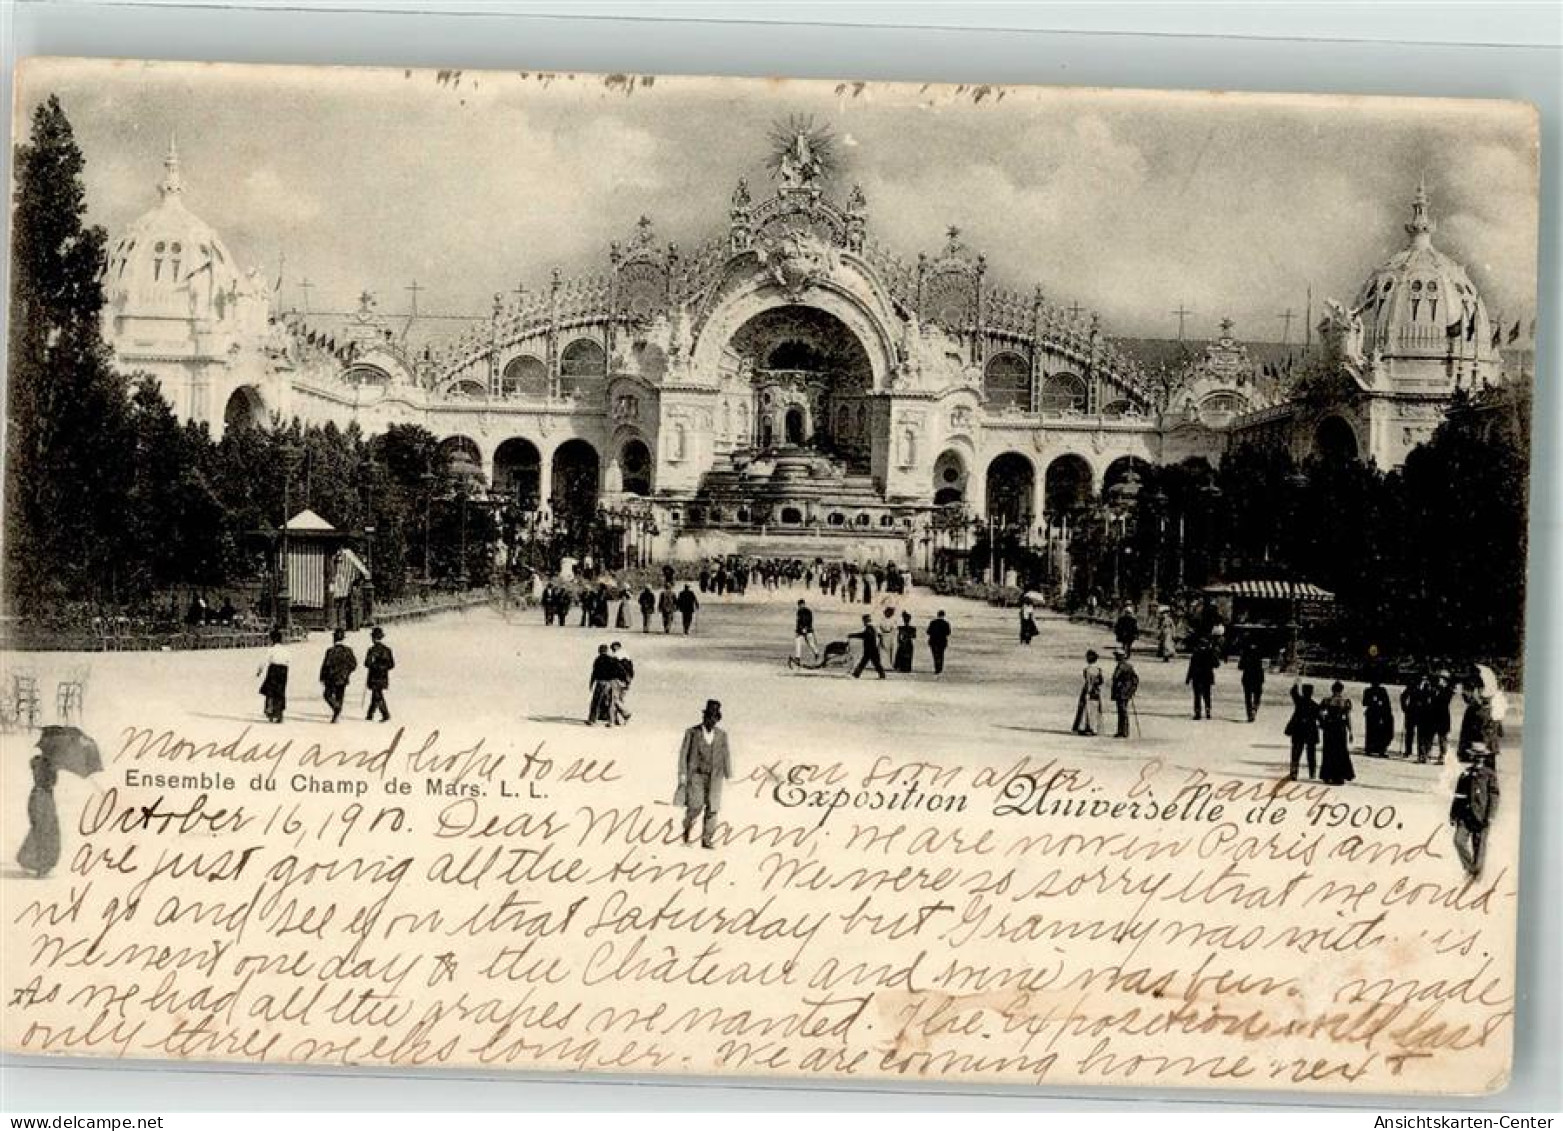 Monday and hope to see you soon after. E. Farley
Ensemble du Champ de Mars. L. L.
Exposition Universelle de 1900.
October 16, 1900. Dear Miriam, we are now in Paris and
are just going all the time. We were so sorry that we could-
n't go and see you that Saturday but Granny was with us.
We went one day to the Château and wine was being made
As we had all the grapes we wanted. The Exposition will last
only three weeks longer. We are coming home next
www.delcampe.net
Ansichtskarten-Center